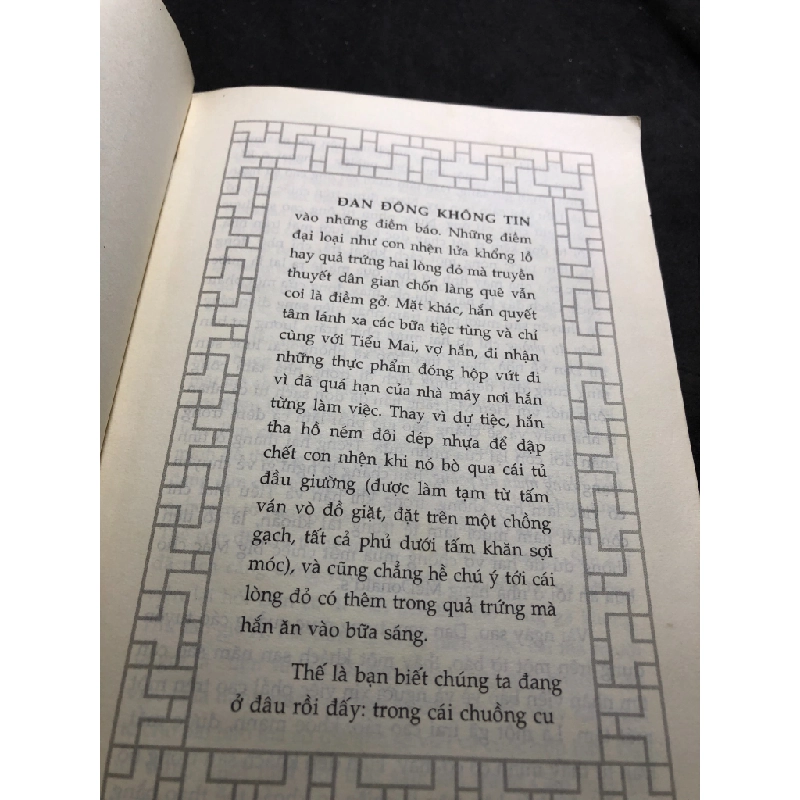 ĐAN ĐÔNG KHÔNG TIN
vào những điềm báo. Những điềm
đại loại như con nhện lửa khổng lồ
hay quả trứng hai lòng đỏ mà truyền
thuyết dân gian chốn làng quê vẫn
coi là điềm gở. Mặt khác, hắn quyết
tâm lánh xa các bữa tiệc tùng và chỉ
cùng với Tiểu Mai, vợ hắn, đi nhận
những thực phẩm đóng hộp vứt đi
vì đã quá hạn của nhà máy nơi hắn
từng làm việc. Thay vì dự tiệc, hắn
tha hồ ném đôi dép nhựa để dập
chết con nhện khi nó bò qua cái tủ
đầu giường (được làm tạm từ tấm
ván vò đồ giặt, đặt trên một chồng
gạch, tất cả phủ dưới tấm khăn sợi
móc), và cũng chẳng hề chú ý tới cái
lòng đỏ có thêm trong quả trứng mà
hắn ăn vào bữa sáng.
Thế là bạn biết chúng ta đang
ở đâu rồi đấy: trong cái chuồng cu